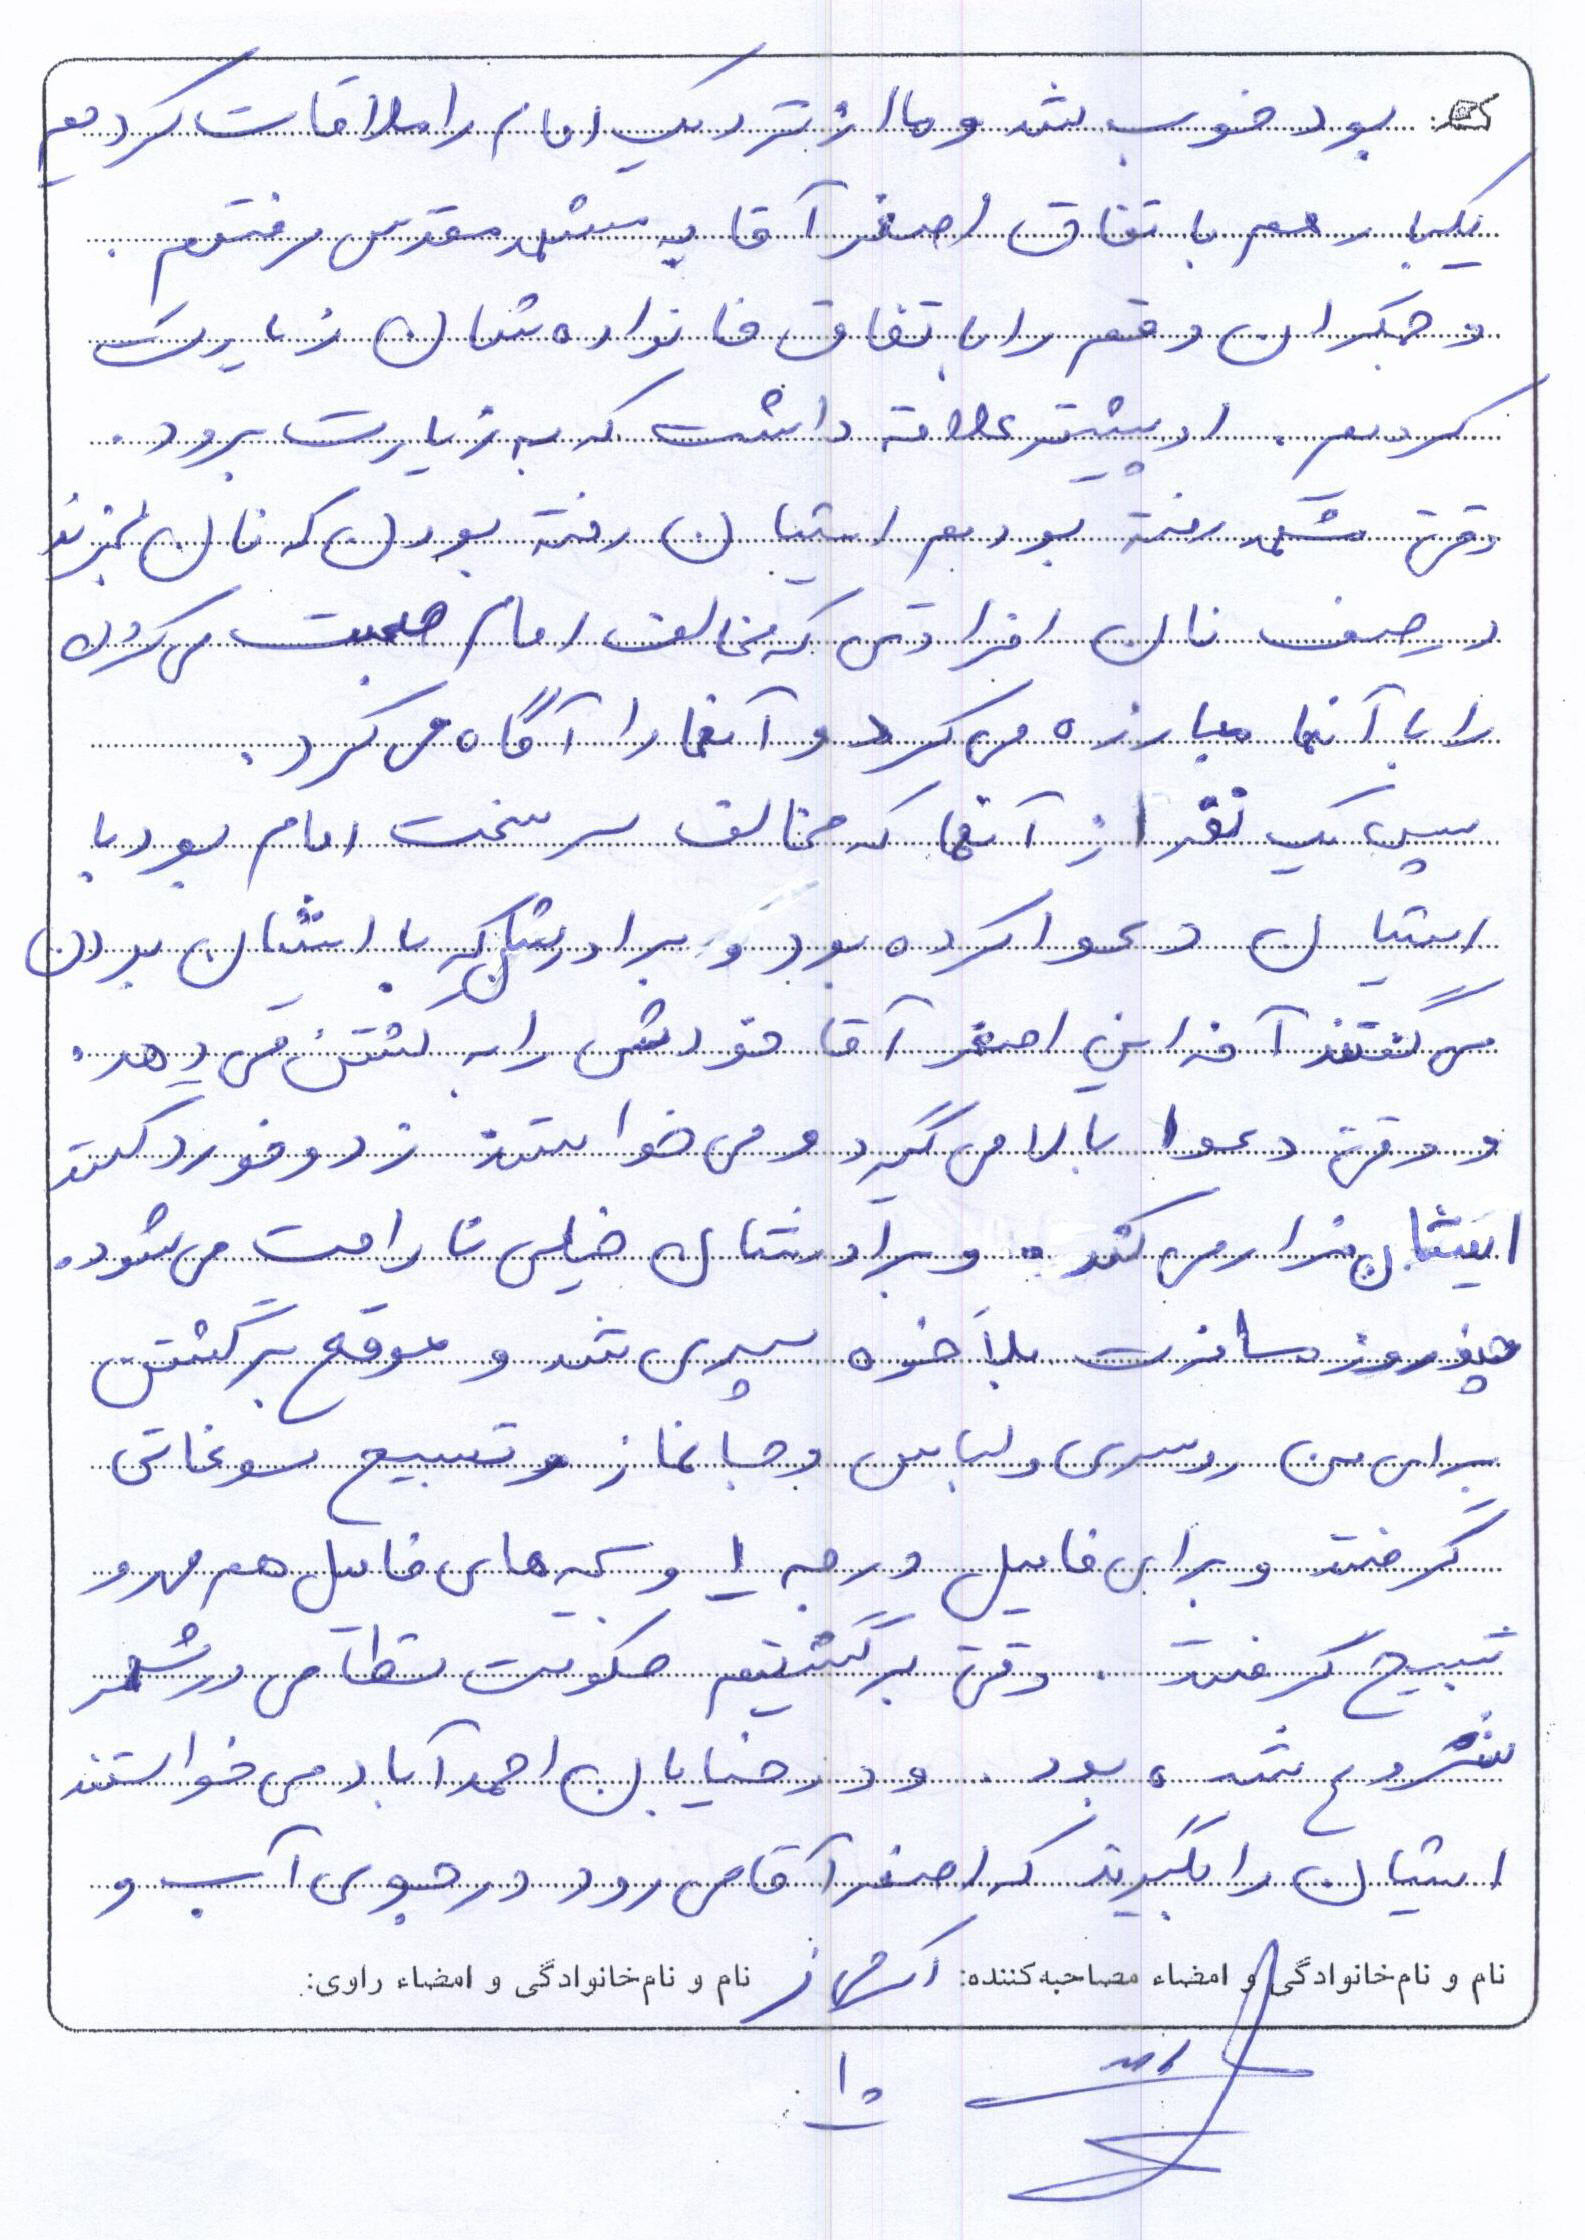 بود خوب شد و ما از نزدیک امام را ملاقات کردیم
یکبار هم با تفاق اصغر آقا به مشهد مقدس رفتیم.
و جمکران و قم را با تفاق خانواده شان زیارت
کردیم. او بیشتر علاقه داشت که به زیارت برود.
وقتی مشهد رفته بودیم ایشان رفته بودن که نان بخرند
در صف نان افرادی که مخالف امام صحبت می کردن
را با آنها مبارزه می کرد و آنها را آگاه می کرد.
سپس یک نفر از آنها که مخالف سرسخت امام بود با
ایشان دعوا کرده بود و برادرشان که با ایشان بودن
می گفتند آخر این اصغر آقا خودش را به کشتن می دهد.
و وقتی دعوا بالا می گیرد و می خواستند زد و خورد کنند
ایشان فرار می کند. و برادرشان خیلی ناراحت می شود.
چند روز مسافرت بلاخره سپری شد و موقع برگشتن
برای من روسری و لباس و جانماز و تسبیح سوغاتی
گرفتند و برای فامیل درجه ۱ و بچه های فامیل هم مهر و
تسبیح گرفتند. وقتی برگشتیم حکومت نظامی در شهر
شروع شده بود. و در خیابان احمدآباد می خواستند
ایشان را بگیرند که اصغر آقا می رود در جوی آب و
نام و نام‌خانوادگی و امضاء مصاحبه‌کننده: نام و نام‌خانوادگی و امضاء راوی:
۱۰